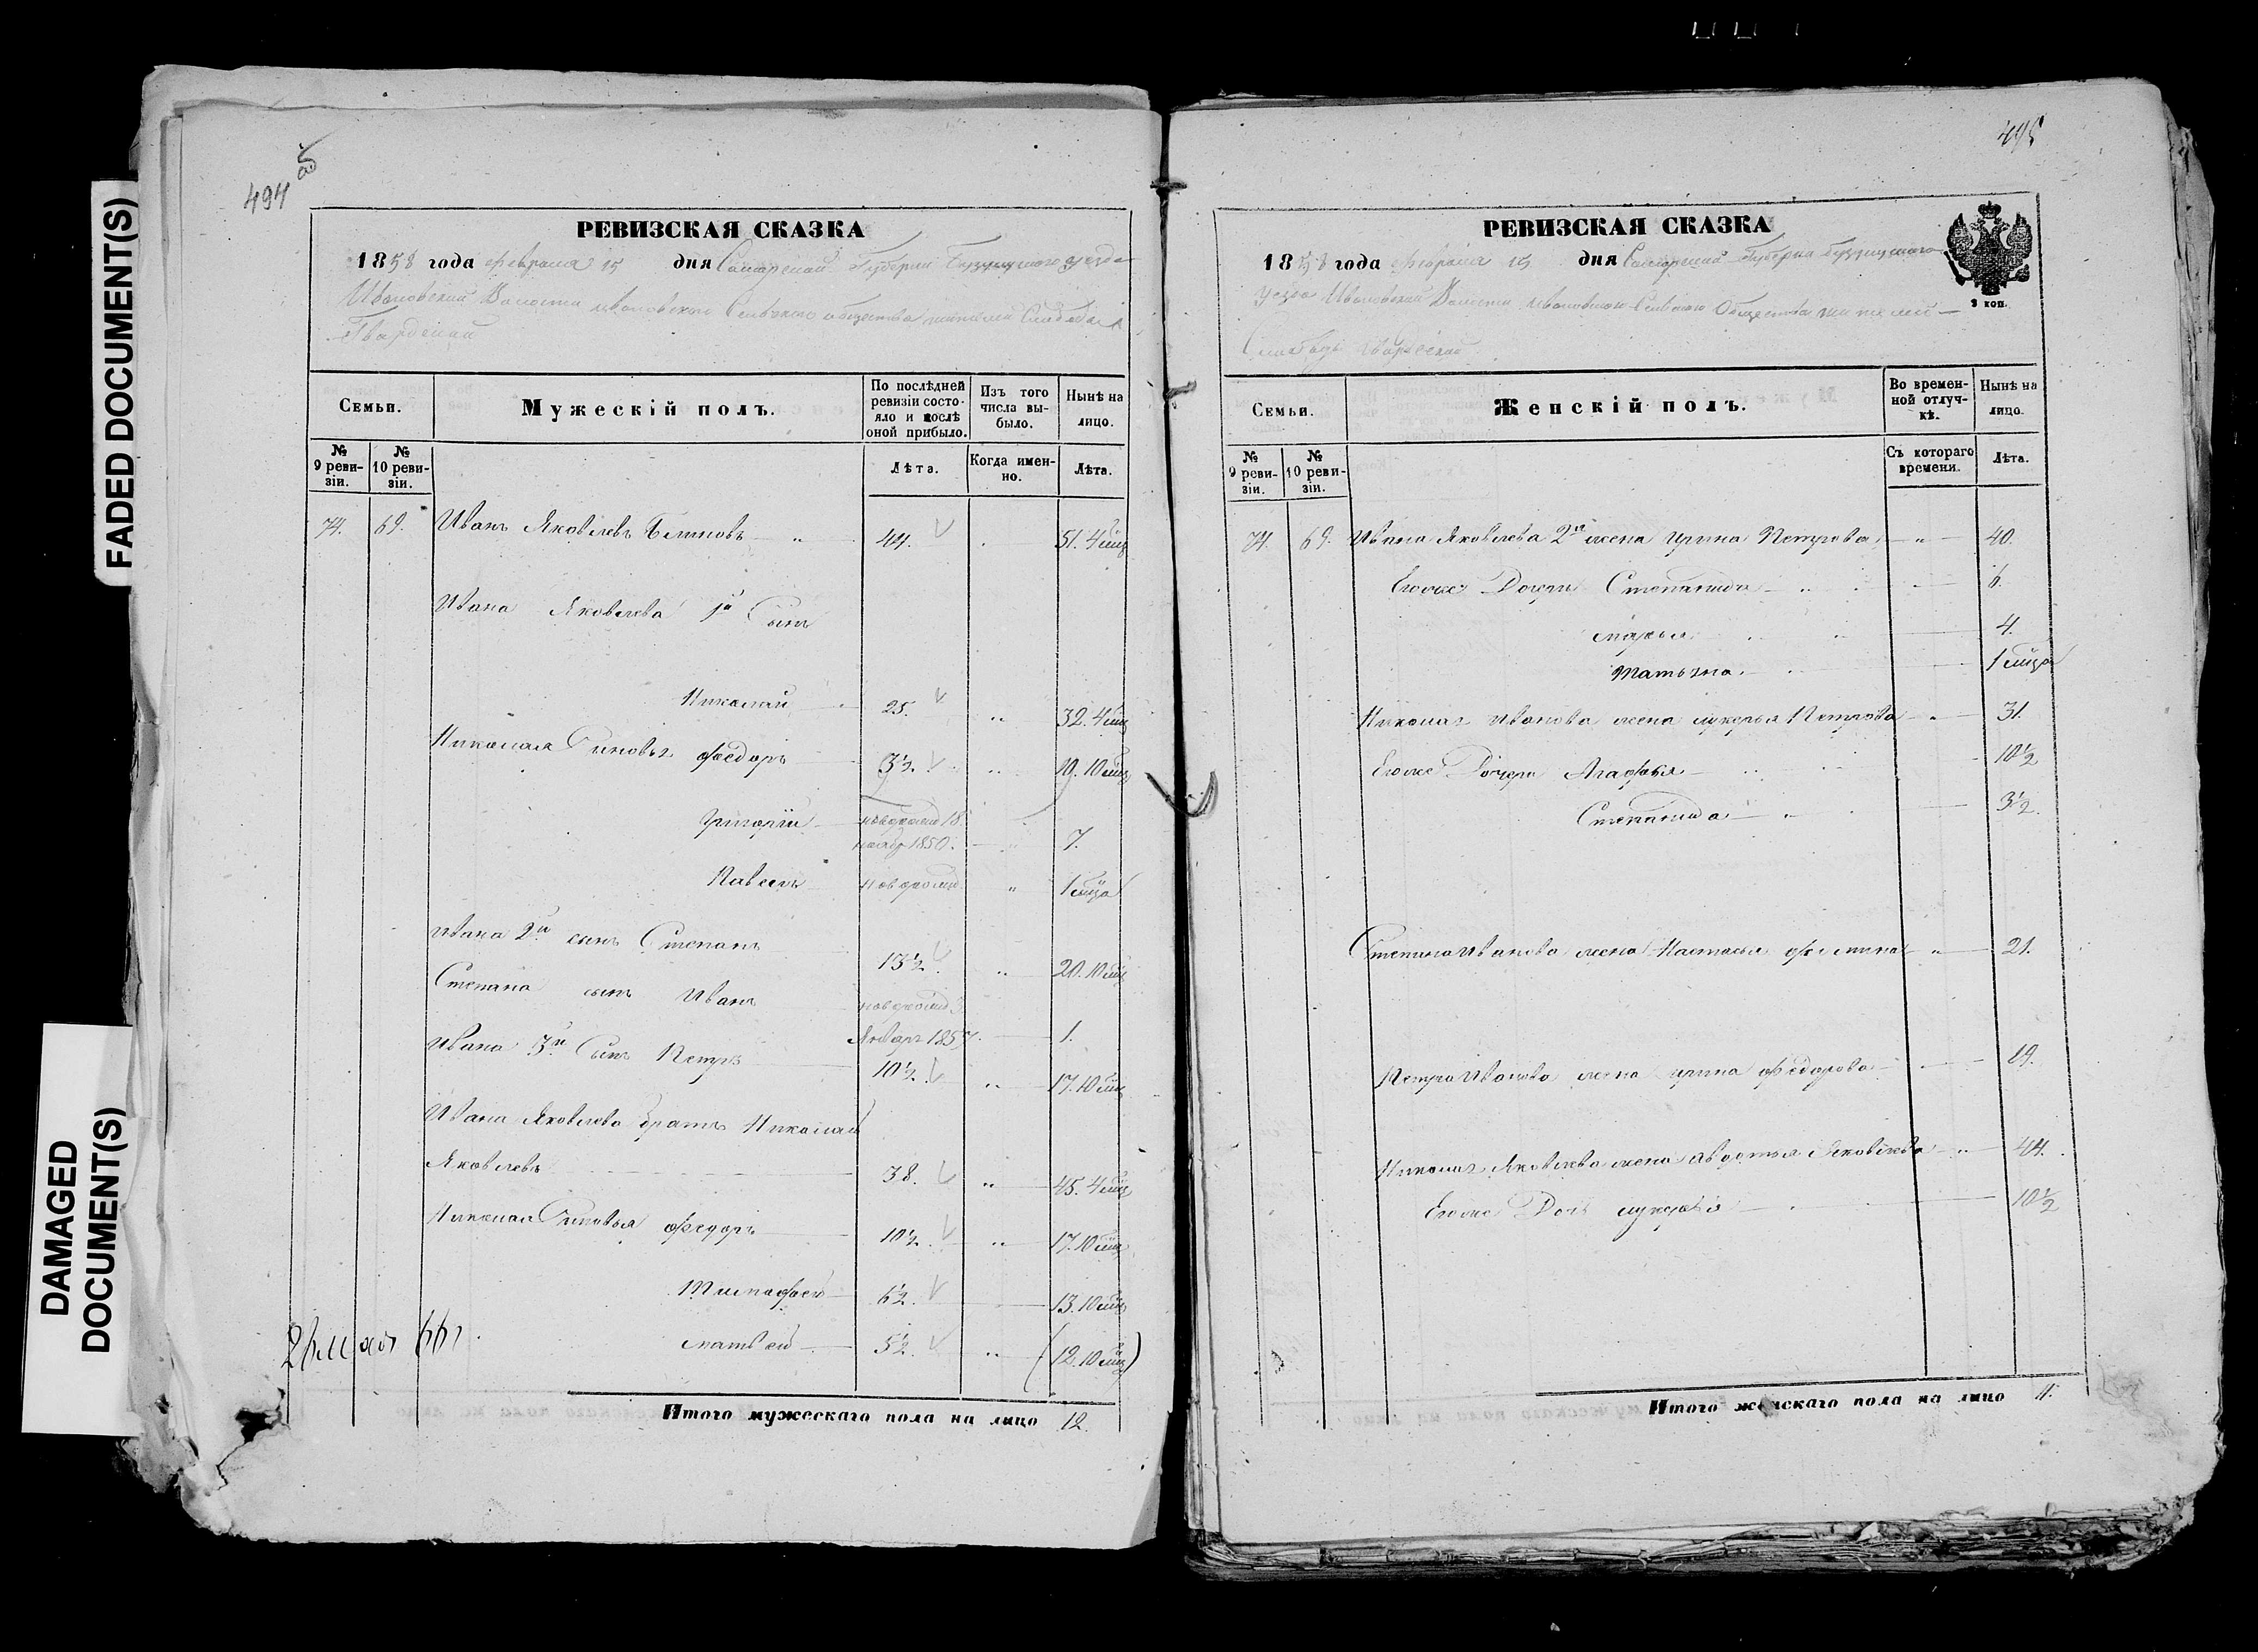 FADED DOCUMENT(S)
DAMAGED
DOCUMENT(S)
494
об
РЕВИЗСКАЯ СКАЗКА
1858 года февраля 15 дня Самарской Губерніи Бузулукского уезда
Ивановской Волости Ивановского Сельского общества жителей Слободы
Гвардейской
Семьи.
Мужескій полъ.
По послѣдней ревизіи состояло и послѣ оной прибыло.
Изъ того числа выбыло.
Нынѣ на лицо.
№ 9 ревизіи.
№ 10 ревизіи.
Лѣта.
Когда именно.
Лѣта.
74. 69. Иванъ Яковлевъ 44. 51. 4 мѣц
Ивана Яковлева 1й Сынъ
Николай 25. 32. 4 мѣц
Николая Синовья Федоръ 3½. 10. 10 мѣц
Григорій новорожд 18
нояб 1850. 7.
Павелъ новорожд 1 мѣца
Ивана 2й сынъ Степанъ 13½. 20. 10 мѣц
Степана сынъ Иванъ новорожд 3
Январ 1857. 1.
Ивана 3й Сынъ Петръ 10½. 17. 10 мѣц
Ивана Яковлева братъ Николай
Яковлевъ 38. 45. 4 мѣц
Николая Синовья Федоръ 10½. 17. 10 мѣц
Тимофей 6½. 13. 10 мѣц
Матвей 5½. (12. 10 мѣц)
Итого мужескаго пола на лицо 12.
495
РЕВИЗСКАЯ СКАЗКА
1858 года февраля 15 дня Самарской Губерніи Бузулукского
Уезда Ивановской Волости Ивановского Сельского Общества жителей
Слободы Гвардейской
3 коп.
Семьи.
Женскій полъ.
Во временной отлучкѣ.
Нынѣ на лицо.
№ 9 ревизіи.
№ 10 ревизіи.
Съ котораго времени.
Лѣта.
74. 69. Ивана Яковлева 2я жена Ирина Петрова 40.
Егоже Дочери Степанида 6.
Марья 4.
Татьяна 1 мѣца
Николая Иванова жена Лукерья Петрова 31.
Егоже Дочери Агафья 10½
Степанида 3½.
Степана Иванова жена Настасья 21.
Петра Иванова жена Ирина Федорова 19.
Николая Яковлева жена Авдотья Яковлева 44.
Егоже Дочь Лукерья 10½
Итого женскаго пола на лицо 11.